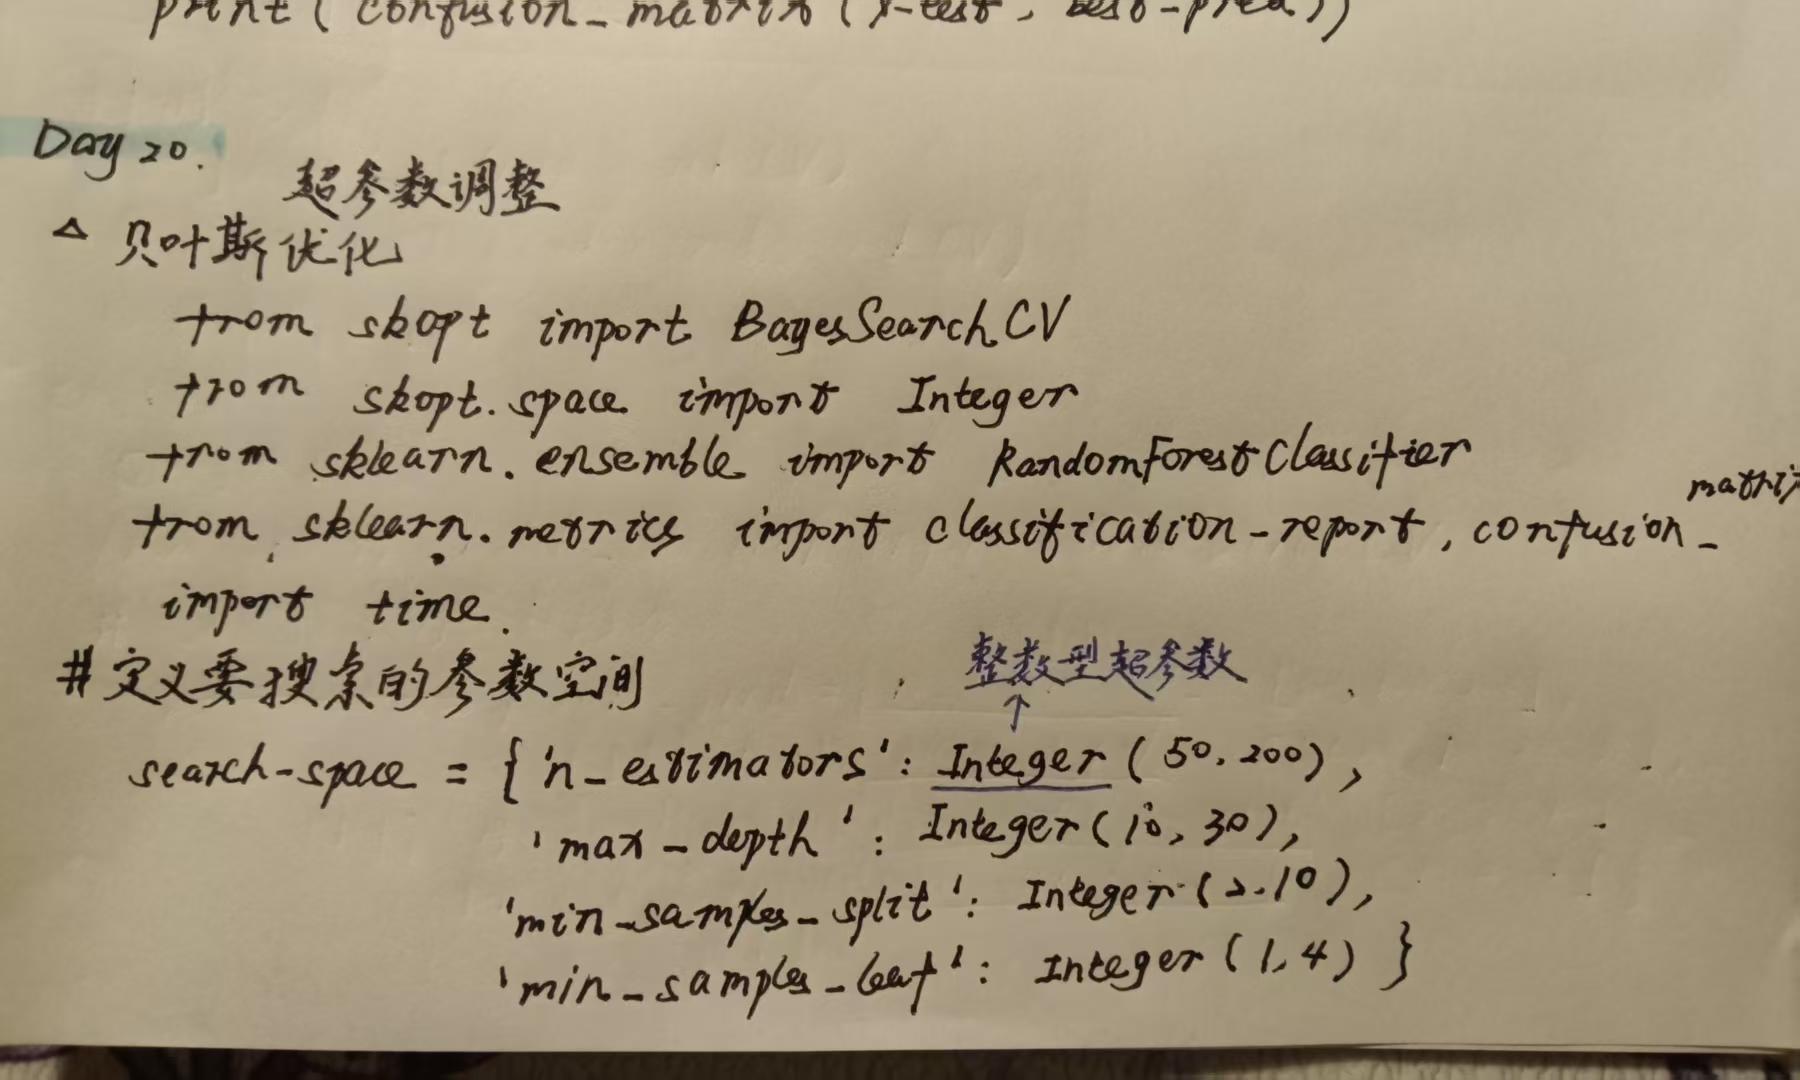 print ( confusion_matrix ( y-test , test-pred ))
Day 20.
超参数调整
△ 贝叶斯优化
from skopt import BayesSearchCV
from skopt.space import Integer
from sklearn.ensemble import RandomForestClassifier
from sklearn.metrics import classification-report, confusion_matrix
import time.
整数型超参数
↑
# 定义要搜索的参数空间
search-space = { 'n_estimators': Integer (50, 200),
'max_depth': Integer (10, 30),
'min_samples_split': Integer (2, 10),
'min_samples_leaf': Integer (1, 4) }